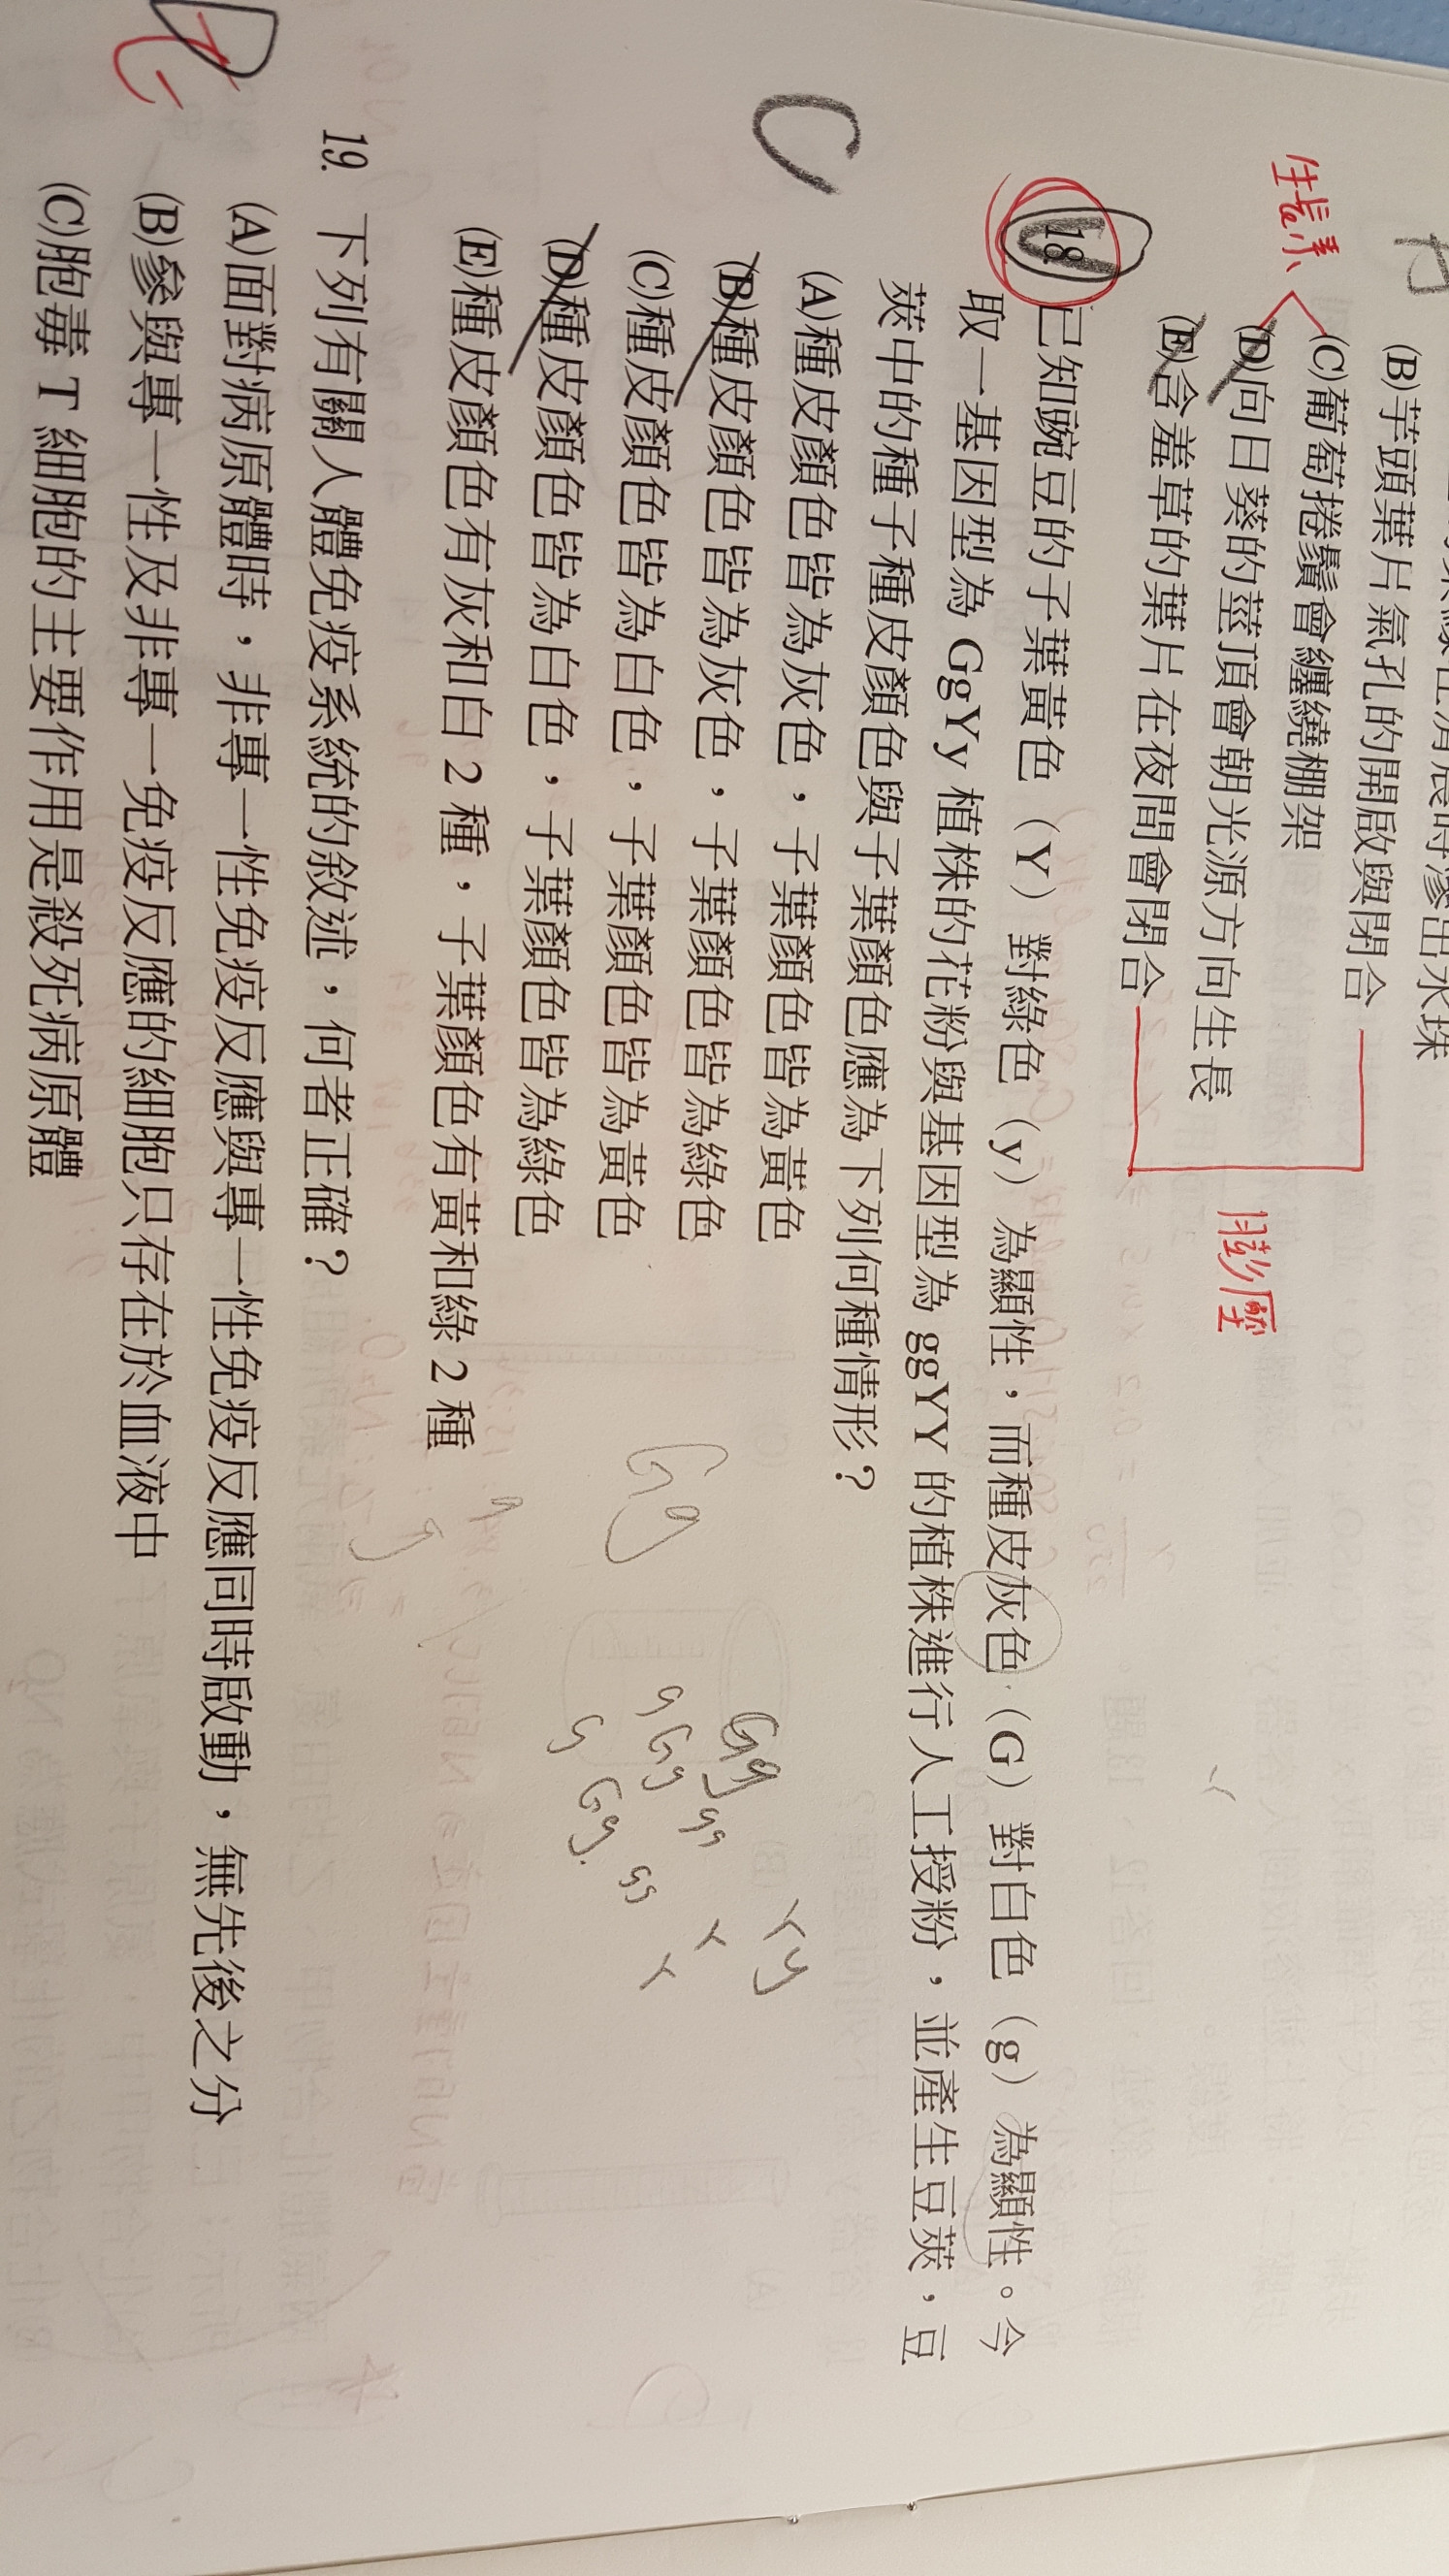 (B)芋頭葉片氣孔的開啟與閉合
(C)葡萄捲鬚會纏繞棚架
(D)向日葵的莖頂會朝光源方向生長
(E)含羞草的葉片在夜間會閉合
生長素
膨壓
C
18. 已知豌豆的子葉黃色（Y）對綠色（y）為顯性，而種皮灰色（G）對白色（g）為顯性。今
取一基因型為 GgYy 植株的花粉與基因型為 ggYY 的植株進行人工授粉，並產生豆莢，豆
莢中的種子種皮顏色與子葉顏色應為下列何種情形？
(A)種皮顏色皆為灰色，子葉顏色皆為黃色
(B)種皮顏色皆為灰色，子葉顏色皆為綠色
(C)種皮顏色皆為白色，子葉顏色皆為黃色
(D)種皮顏色皆為白色，子葉顏色皆為綠色
(E)種皮顏色有灰和白 2 種，子葉顏色有黃和綠 2 種
Gg
Gg Yy
g Gg gg Y
g Gg. gg Y
19. 下列有關人體免疫系統的敘述，何者正確？
(A)面對病原體時，非專一性免疫反應與專一性免疫反應同時啟動，無先後之分
(B)參與專一性及非專一免疫反應的細胞只存在於血液中
(C)胞毒 T 細胞的主要作用是殺死病原體